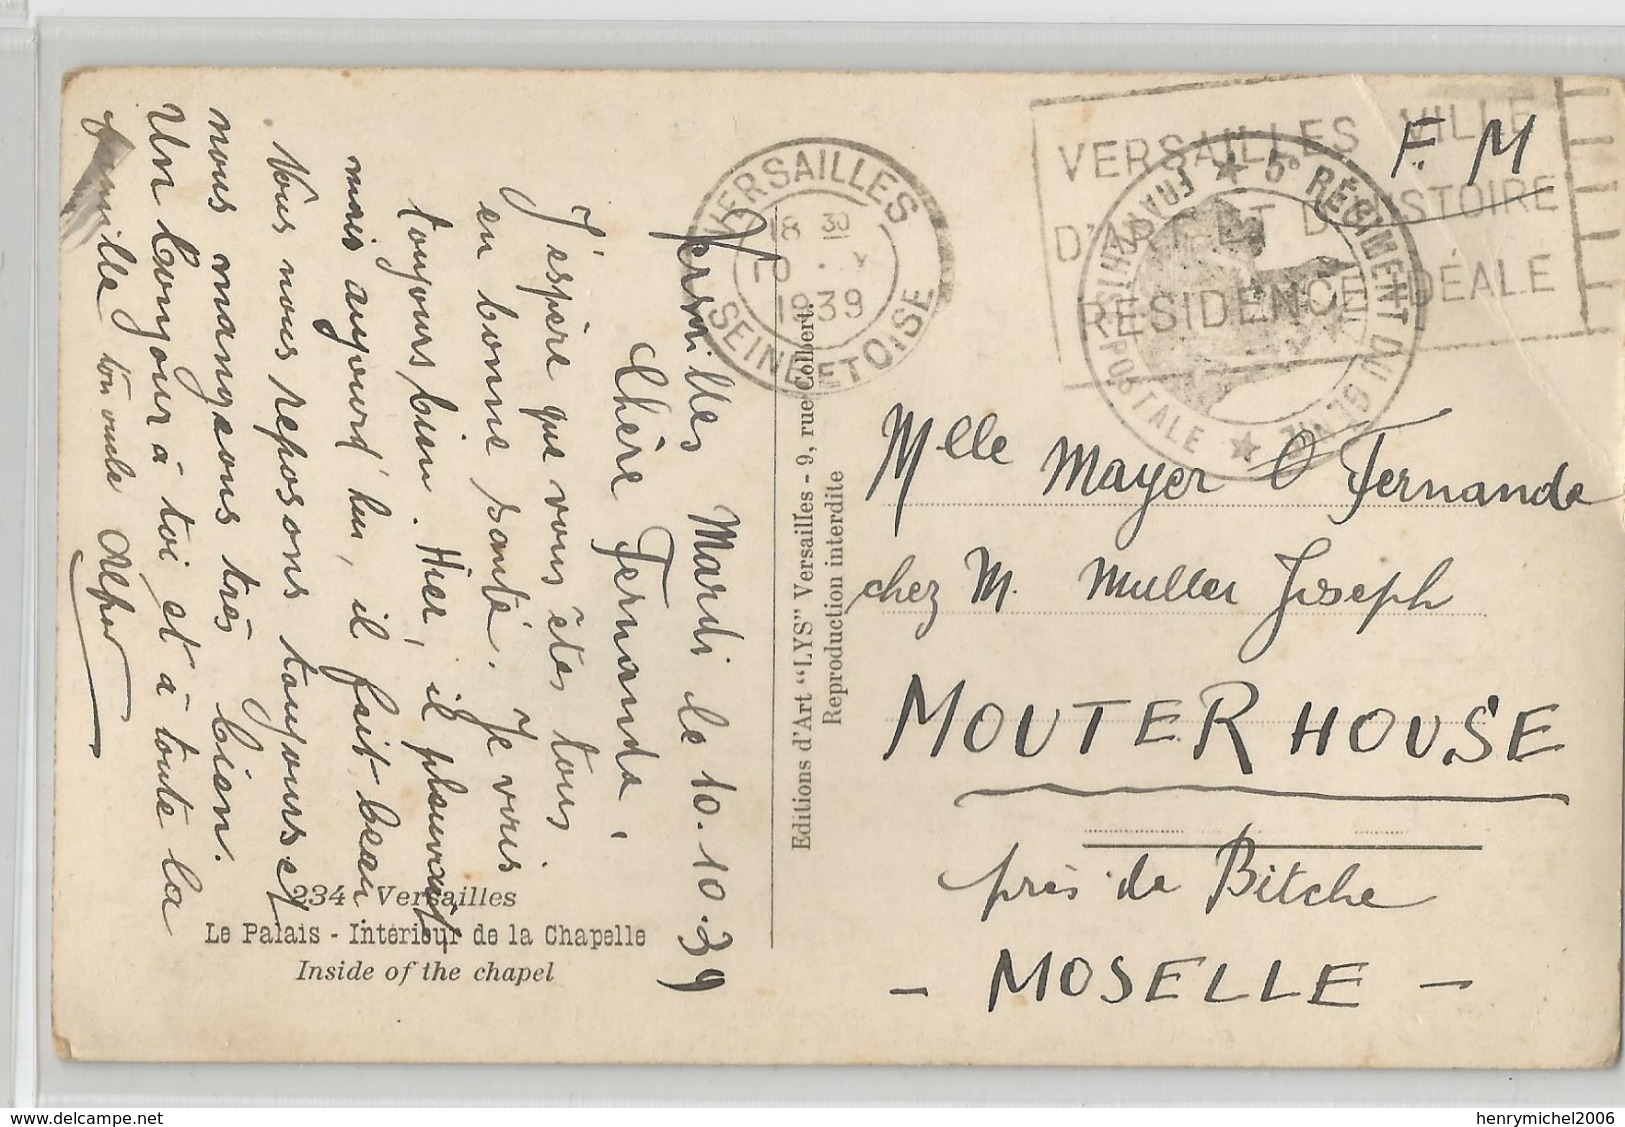 Versailles Mardi le 10.10.39
Chère Fernande,
J'espère que vous êtes tous
en bonne santé. Je vais
toujours bien. Hier, il pleuvait
mais aujourd'hui, il fait beau
Nous nous reposons toujours et
nous mangeons très bien.
Un bonjour à toi et à toute la
famille ton oncle
234 Versailles
Le Palais - Intérieur de la Chapelle
Inside of the chapel
Editions d'Art "LYS" Versailles - 9, rue Colbert.
Reproduction interdite
VERSAILLES
18 30
10 . X
1939
SEINE-ET-OISE
VERSAILLES VILLE
D'ART ET D'HISTOIRE
RÉSIDENCE IDÉALE
★ 5e RÉGIMENT DU GÉNIE ★
FRANCHISE POSTALE
F. M
Mlle Mayer Fernande
chez M. Muller Joseph
MOUTERHOUSE
près de Bitche
- MOSELLE -
henrymichel2006